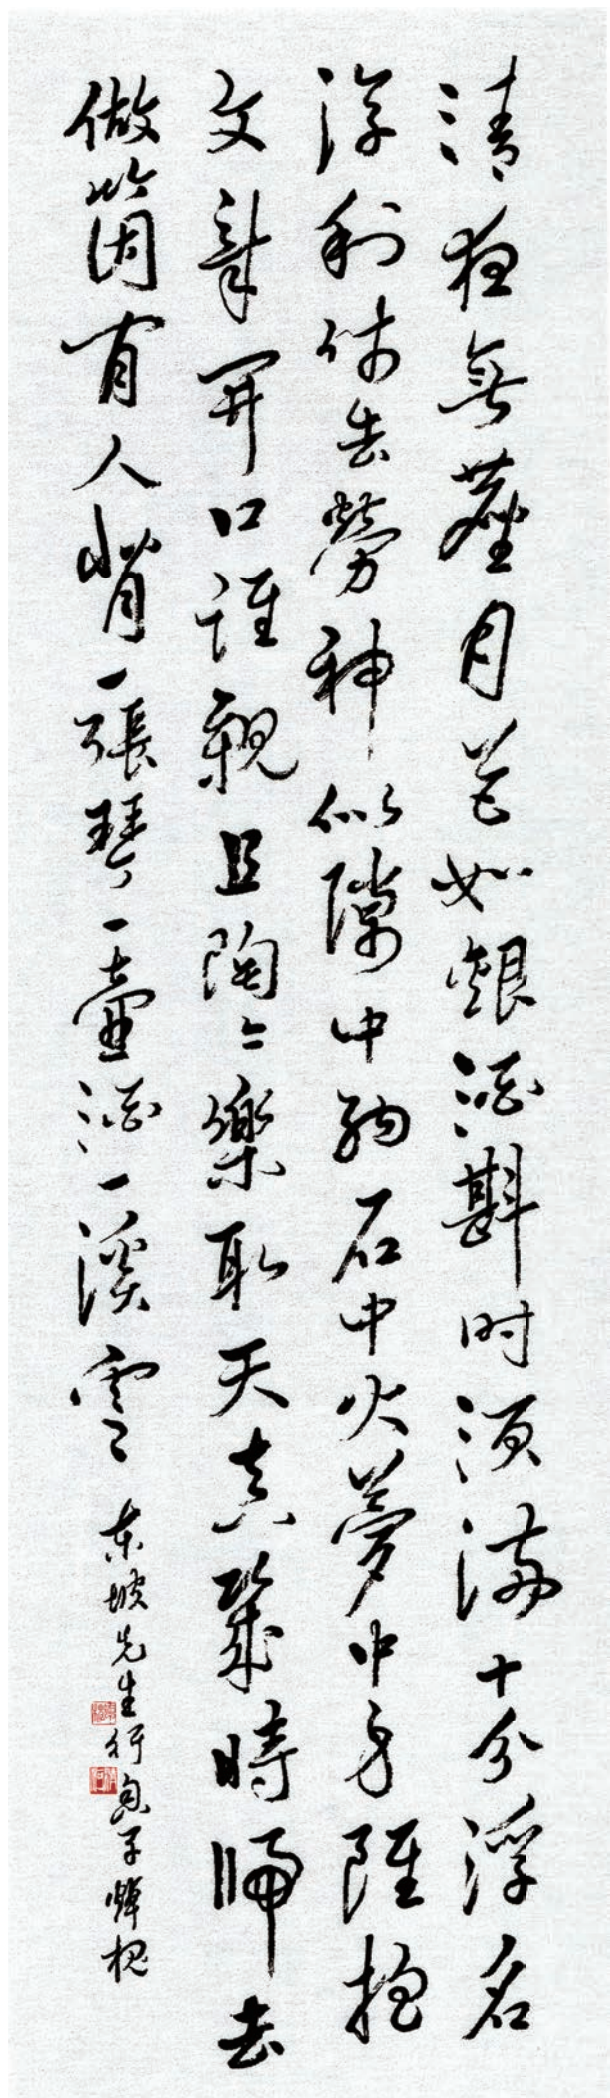 清夜無塵月色如銀酒斟时須滿十分浮名
浮利休苦勞神似隙中駒石中火夢中身雖抱
文章開口誰親且陶々樂取天真幾時歸去
做箇閒人背一張琴一壺酒一溪雲 東坡先生行香子